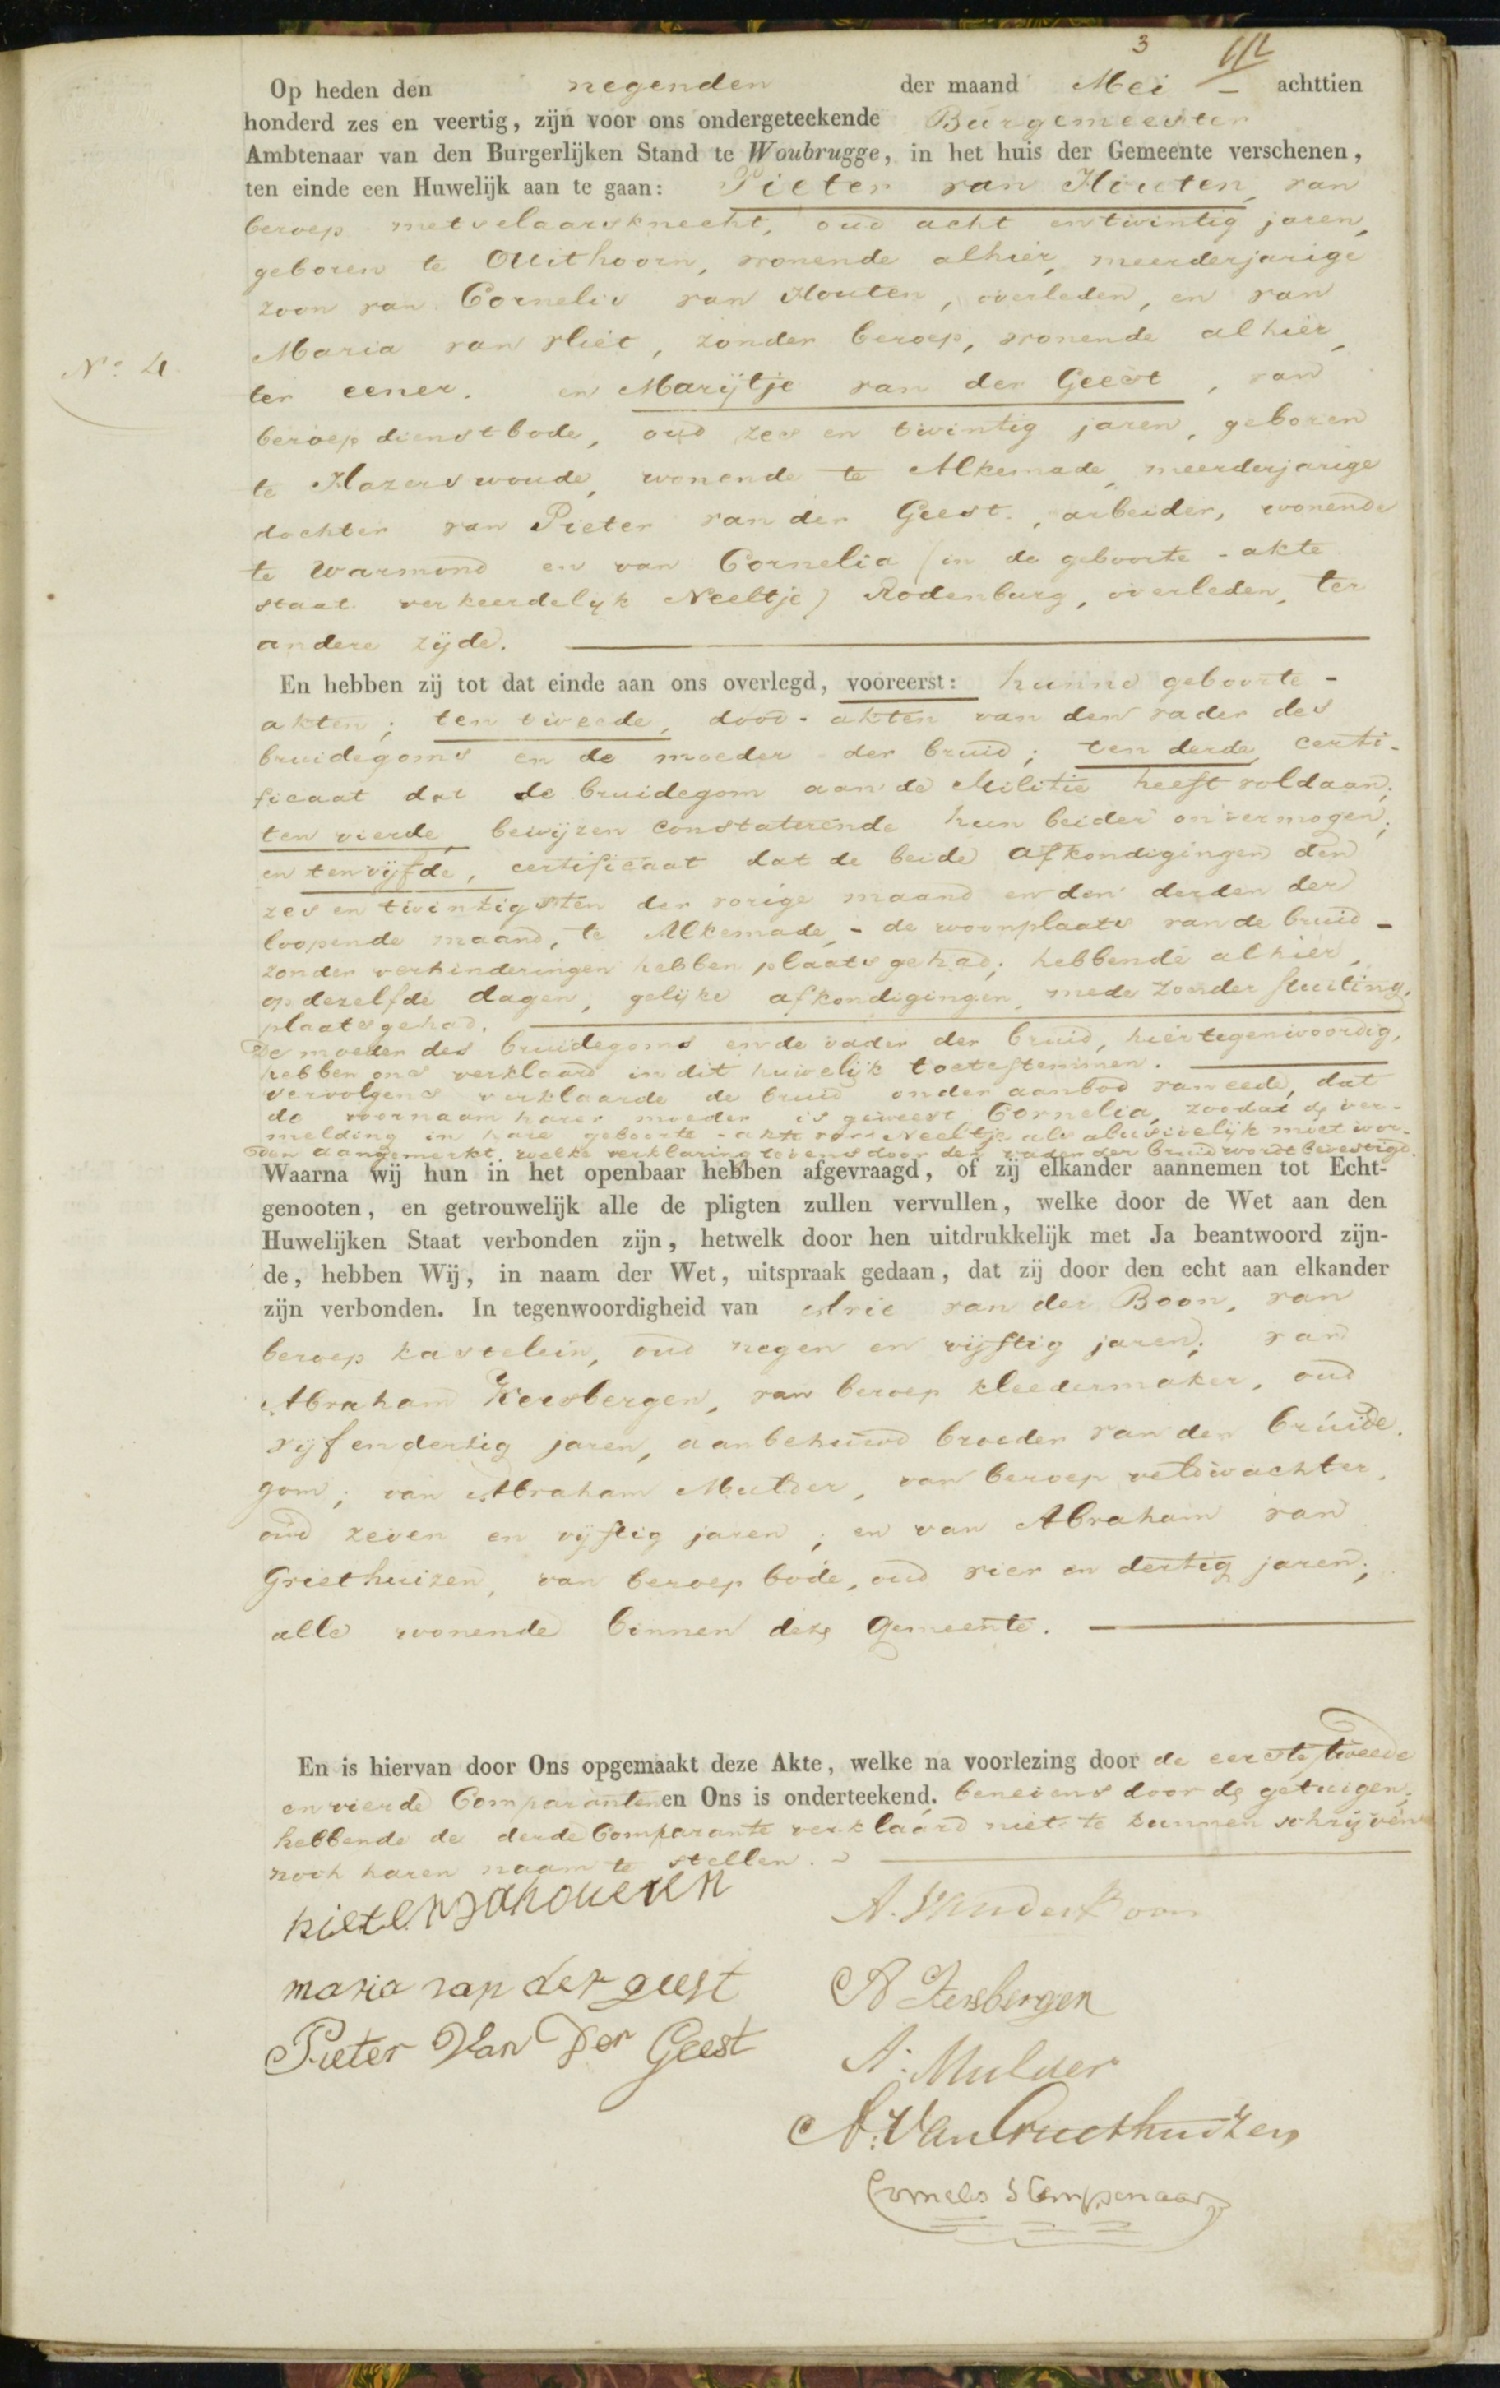 3
Op heden den negenden der maand Mei - achttien
honderd zes en veertig, zijn voor ons ondergeteekende Burgemeester
Ambtenaar van den Burgerlijken Stand te Woubrugge, in het huis der Gemeente verschenen,
ten einde een Huwelijk aan te gaan: Pieter van Houten, van
beroep metselaarsknecht, oud acht en twintig jaren,
geboren te Uithoorn, wonende alhier, meerderjarige
zoon van Cornelis van Houten, overleden, en van
Maria van Vliet, zonder beroep, wonende alhier,
No. 4.
ter eener. en Marijtje van der Geest, van
beroep dienstbode, oud zes en twintig jaren, geboren
te Hazerswoude, wonende te Alkemade, meerderjarige
dochter van Pieter van der Geest, arbeider, wonende
te Warmond en van Cornelia (in de geboorte-akte
staat verkeerdelijk Neeltje) Rodenburg, overleden, ter
andere zijde.
En hebben zij tot dat einde aan ons overlegd, vooreerst: hunne geboorte-
akten; ten tweede, dood-akten van den vader des
bruidegoms en de moeder der bruid; ten derde, certi-
ficaat dat de bruidegom aan de Militie heeft voldaan;
ten vierde, bewijzen constaterende hun beider onvermogen;
en ten vijfde, certificaat dat de beide afkondigingen den
zes en twintigsten der vorige maand en den derden der
loopende maand, te Alkemade, - de woonplaats van de bruid -
zonder verhinderingen hebben plaats gehad; hebbende alhier,
op dezelfde dagen, gelijke afkondigingen, mede zonder stuiting,
plaats gehad.
De moeder des bruidegoms en de vader der bruid, hier tegenwoordig,
hebben ons verklaard in dit huwelijk toetestemmen.
Vervolgens verklaarde de bruid onder aanbod van eede, dat
de voornaam harer moeder is geweest Cornelia, zoodat de ver-
melding in hare geboorte-akte van Neeltje als abusivelijk moet wor-
den aangemerkt, welke verklaring tevens door den vader der bruid wordt bevestigd.
Waarna wij hun in het openbaar hebben afgevraagd, of zij elkander aannemen tot Echt-
genooten, en getrouwelijk alle de pligten zullen vervullen, welke door de Wet aan den
Huwelijken Staat verbonden zijn, hetwelk door hen uitdrukkelijk met Ja beantwoord zijn-
de, hebben Wij, in naam der Wet, uitspraak gedaan, dat zij door den echt aan elkander
zijn verbonden. In tegenwoordigheid van Arie van der Boon, van
beroep kastelein, oud negen en vijftig jaren; van
Abraham Kersbergen, van beroep kleedermaker, oud
vijf en dertig jaren, aanbehuwd broeder van den bruide-
gom; van Abraham Mulder, van beroep veldwachter,
oud zeven en vijftig jaren; en van Abraham van
Griethuizen, van beroep bode, oud vier en dertig jaren;
alle wonende binnen deze gemeente.
En is hiervan door Ons opgemaakt deze Akte, welke na voorlezing door de eerste, tweede
en vierde Comparanten en Ons is onderteekend, benevens door de getuigen;
hebbende de derde Comparante verklaard niet te kunnen schrijven
noch haren naam te stellen.
pieter van houten
A. van der Boon
maria van der geest
A Kersbergen
Pieter Van Der Geest
A. Mulder
A. Van Griethuizen